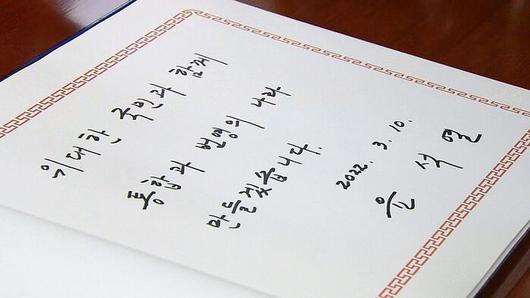 위대한 국민과 함께
통합과 번영의 나라
만들겠습니다.
2022. 3. 10.
윤 석 열